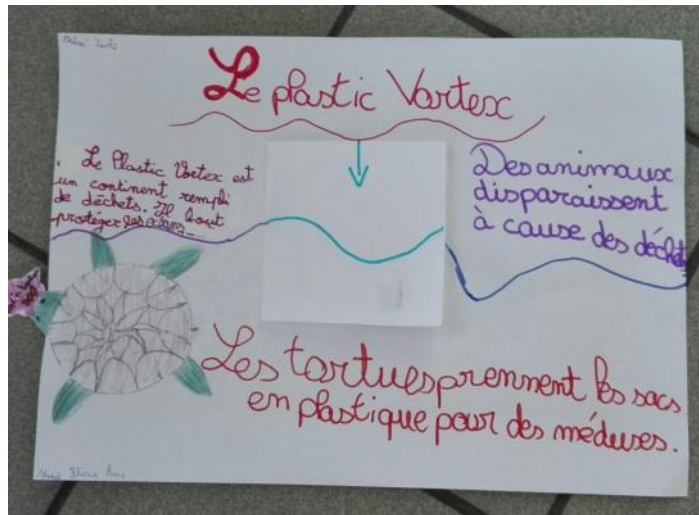 Le plastic Vortex
. Le Plastic Vortex est
un continent rempli
de déchets. Il faut
protéger les océans
Des animaux
disparaissent
à cause des déchets
Les tortues prennent les sacs
en plastique pour des méduses.